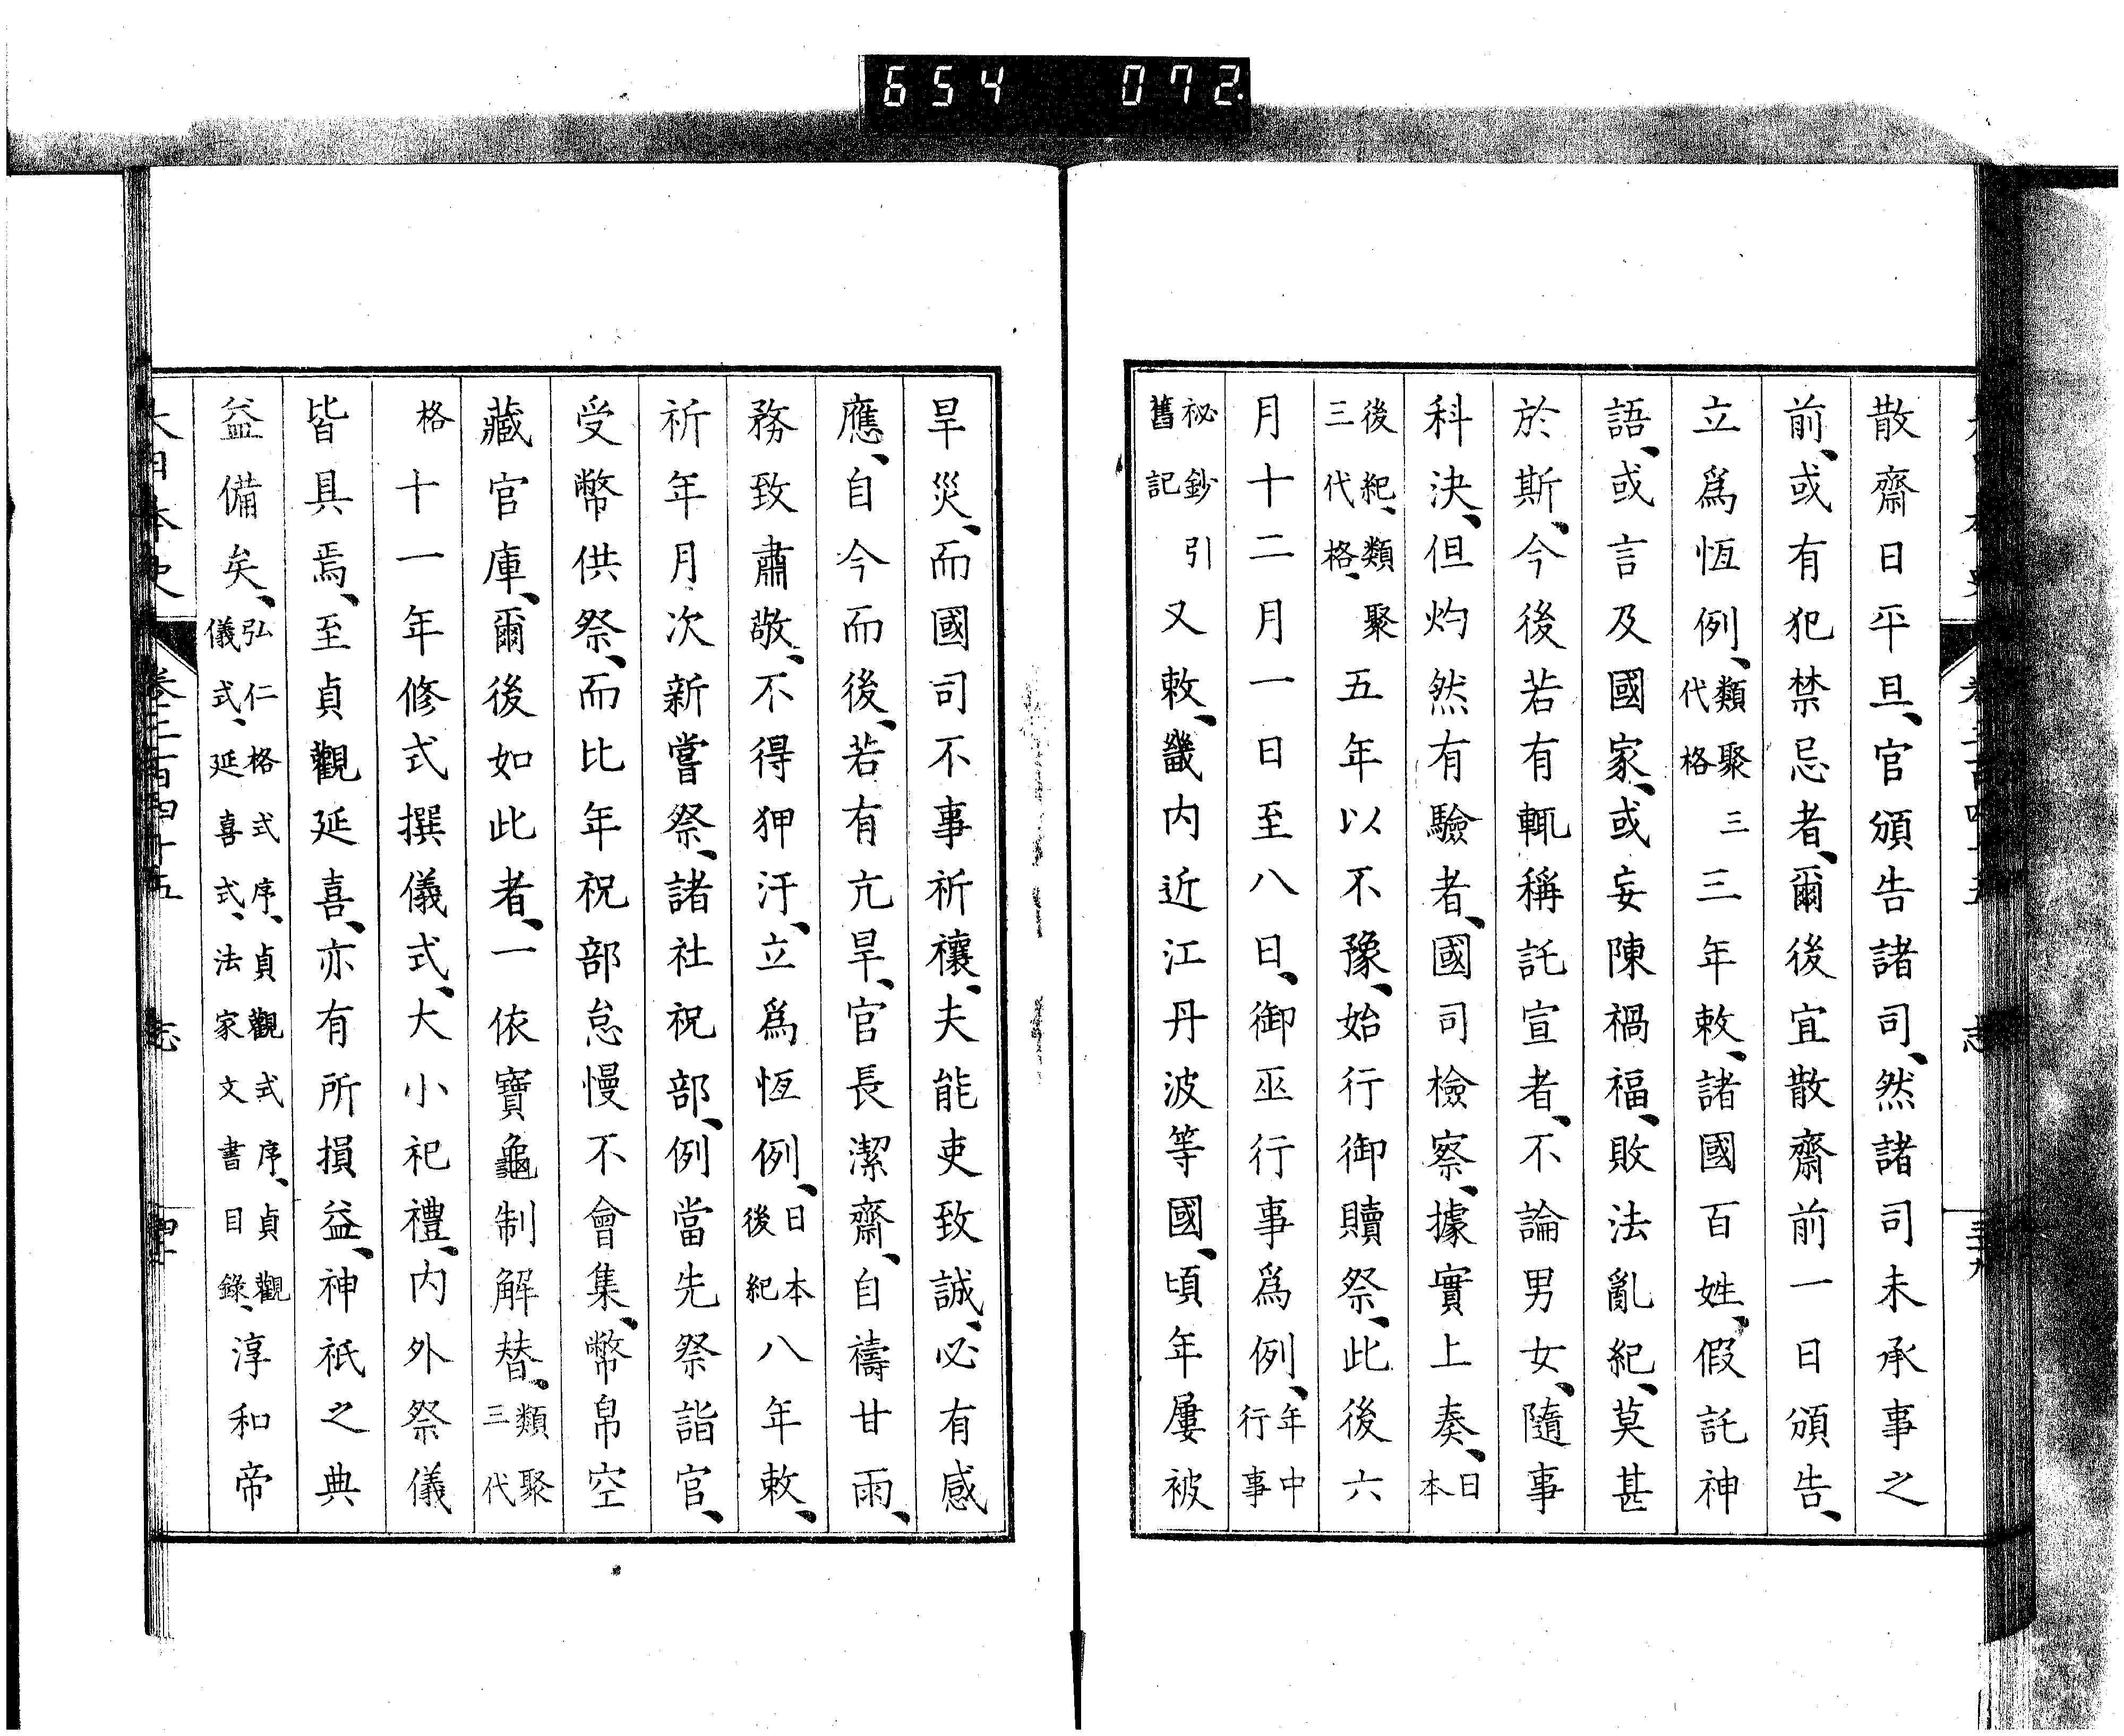 654 072
散齋日平旦、官頒告諸司、然諸司未承事之
前、或有犯禁忌者、爾後宜散齋前一日頒告、
立爲恆例、類聚三代格三年敕、諸國百姓、假託神
語、或言及國家、或妄陳禍福、敗法亂紀、莫甚
於斯、今後若有輒稱託宣者、不論男女、隨事
科決、但灼然有驗者、國司檢察、據實上奏、日本
後紀、類聚三代格、五年以不豫、始行御贖祭、此後六
月十二月一日至八日、御巫行事爲例、年中行事
祕鈔引舊記又敕、畿內近江丹波等國、頃年屢被
旱災、而國司不事祈禳、夫能吏致誠、必有感
應、自今而後、若有亢旱、官長潔齋、自禱甘雨、
務致肅敬、不得狎汙、立爲恆例、日本後紀八年敕、
祈年月次新嘗祭、諸社祝部、例當先祭詣官、
受幣供祭、而比年祝部怠慢不會集、幣帛空
藏官庫、爾後如此者、一依寶龜制解替、類聚三代
格十一年修式撰儀式、大小祀禮、內外祭儀
皆具焉、至貞觀延喜、亦有所損益、神祇之典
益備矣、弘仁格式序、貞觀式序、貞觀儀式、延喜式、法家文書目錄、淳和帝
大日本史 卷二百四十五 志